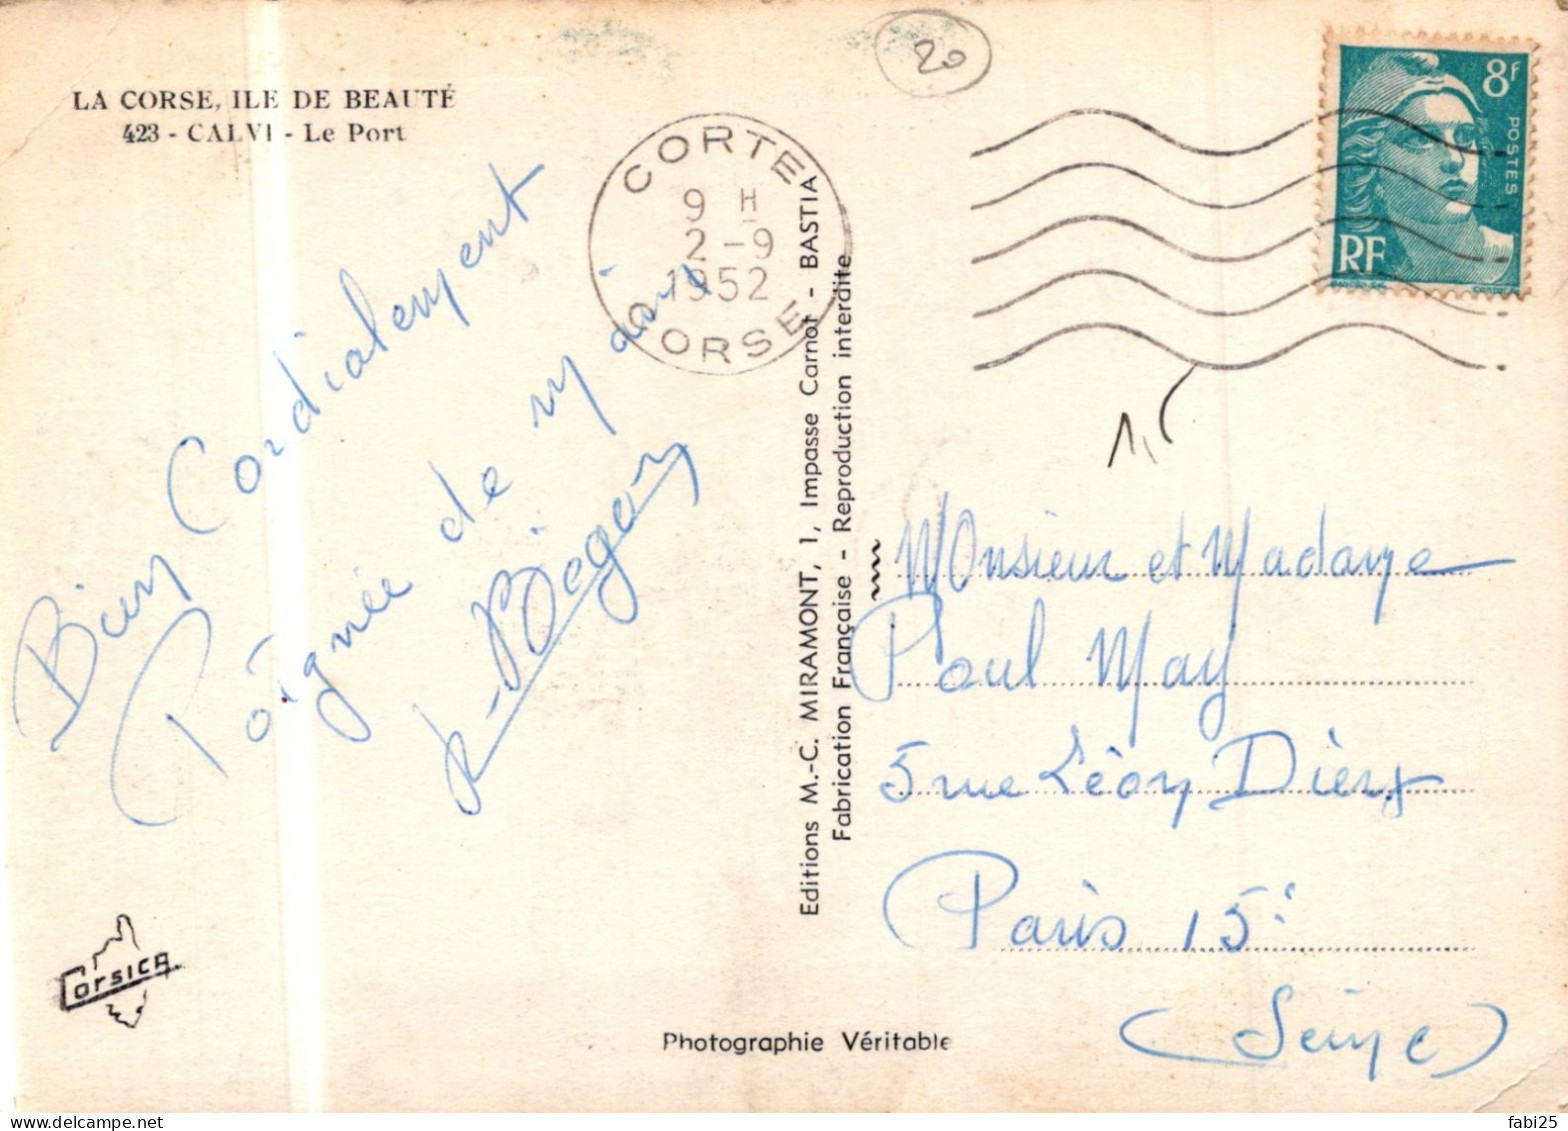 20
LA CORSE, ILE DE BEAUTÉ
423 - CALVI - Le Port
CORTE
9 H
2 - 9
1952
CORSE
8F
POSTES
RF
Bien Cordialement
Poignée de main
Bégon
Editions M.-C. MIRAMONT, 1, Impasse Carnot - BASTIA
Fabrication Française - Reproduction interdite
Monsieur et Madame
Paul May
5 rue Léon Dierx
Paris 15e
(Seine)
Corsica
Photographie Véritable
fabi25